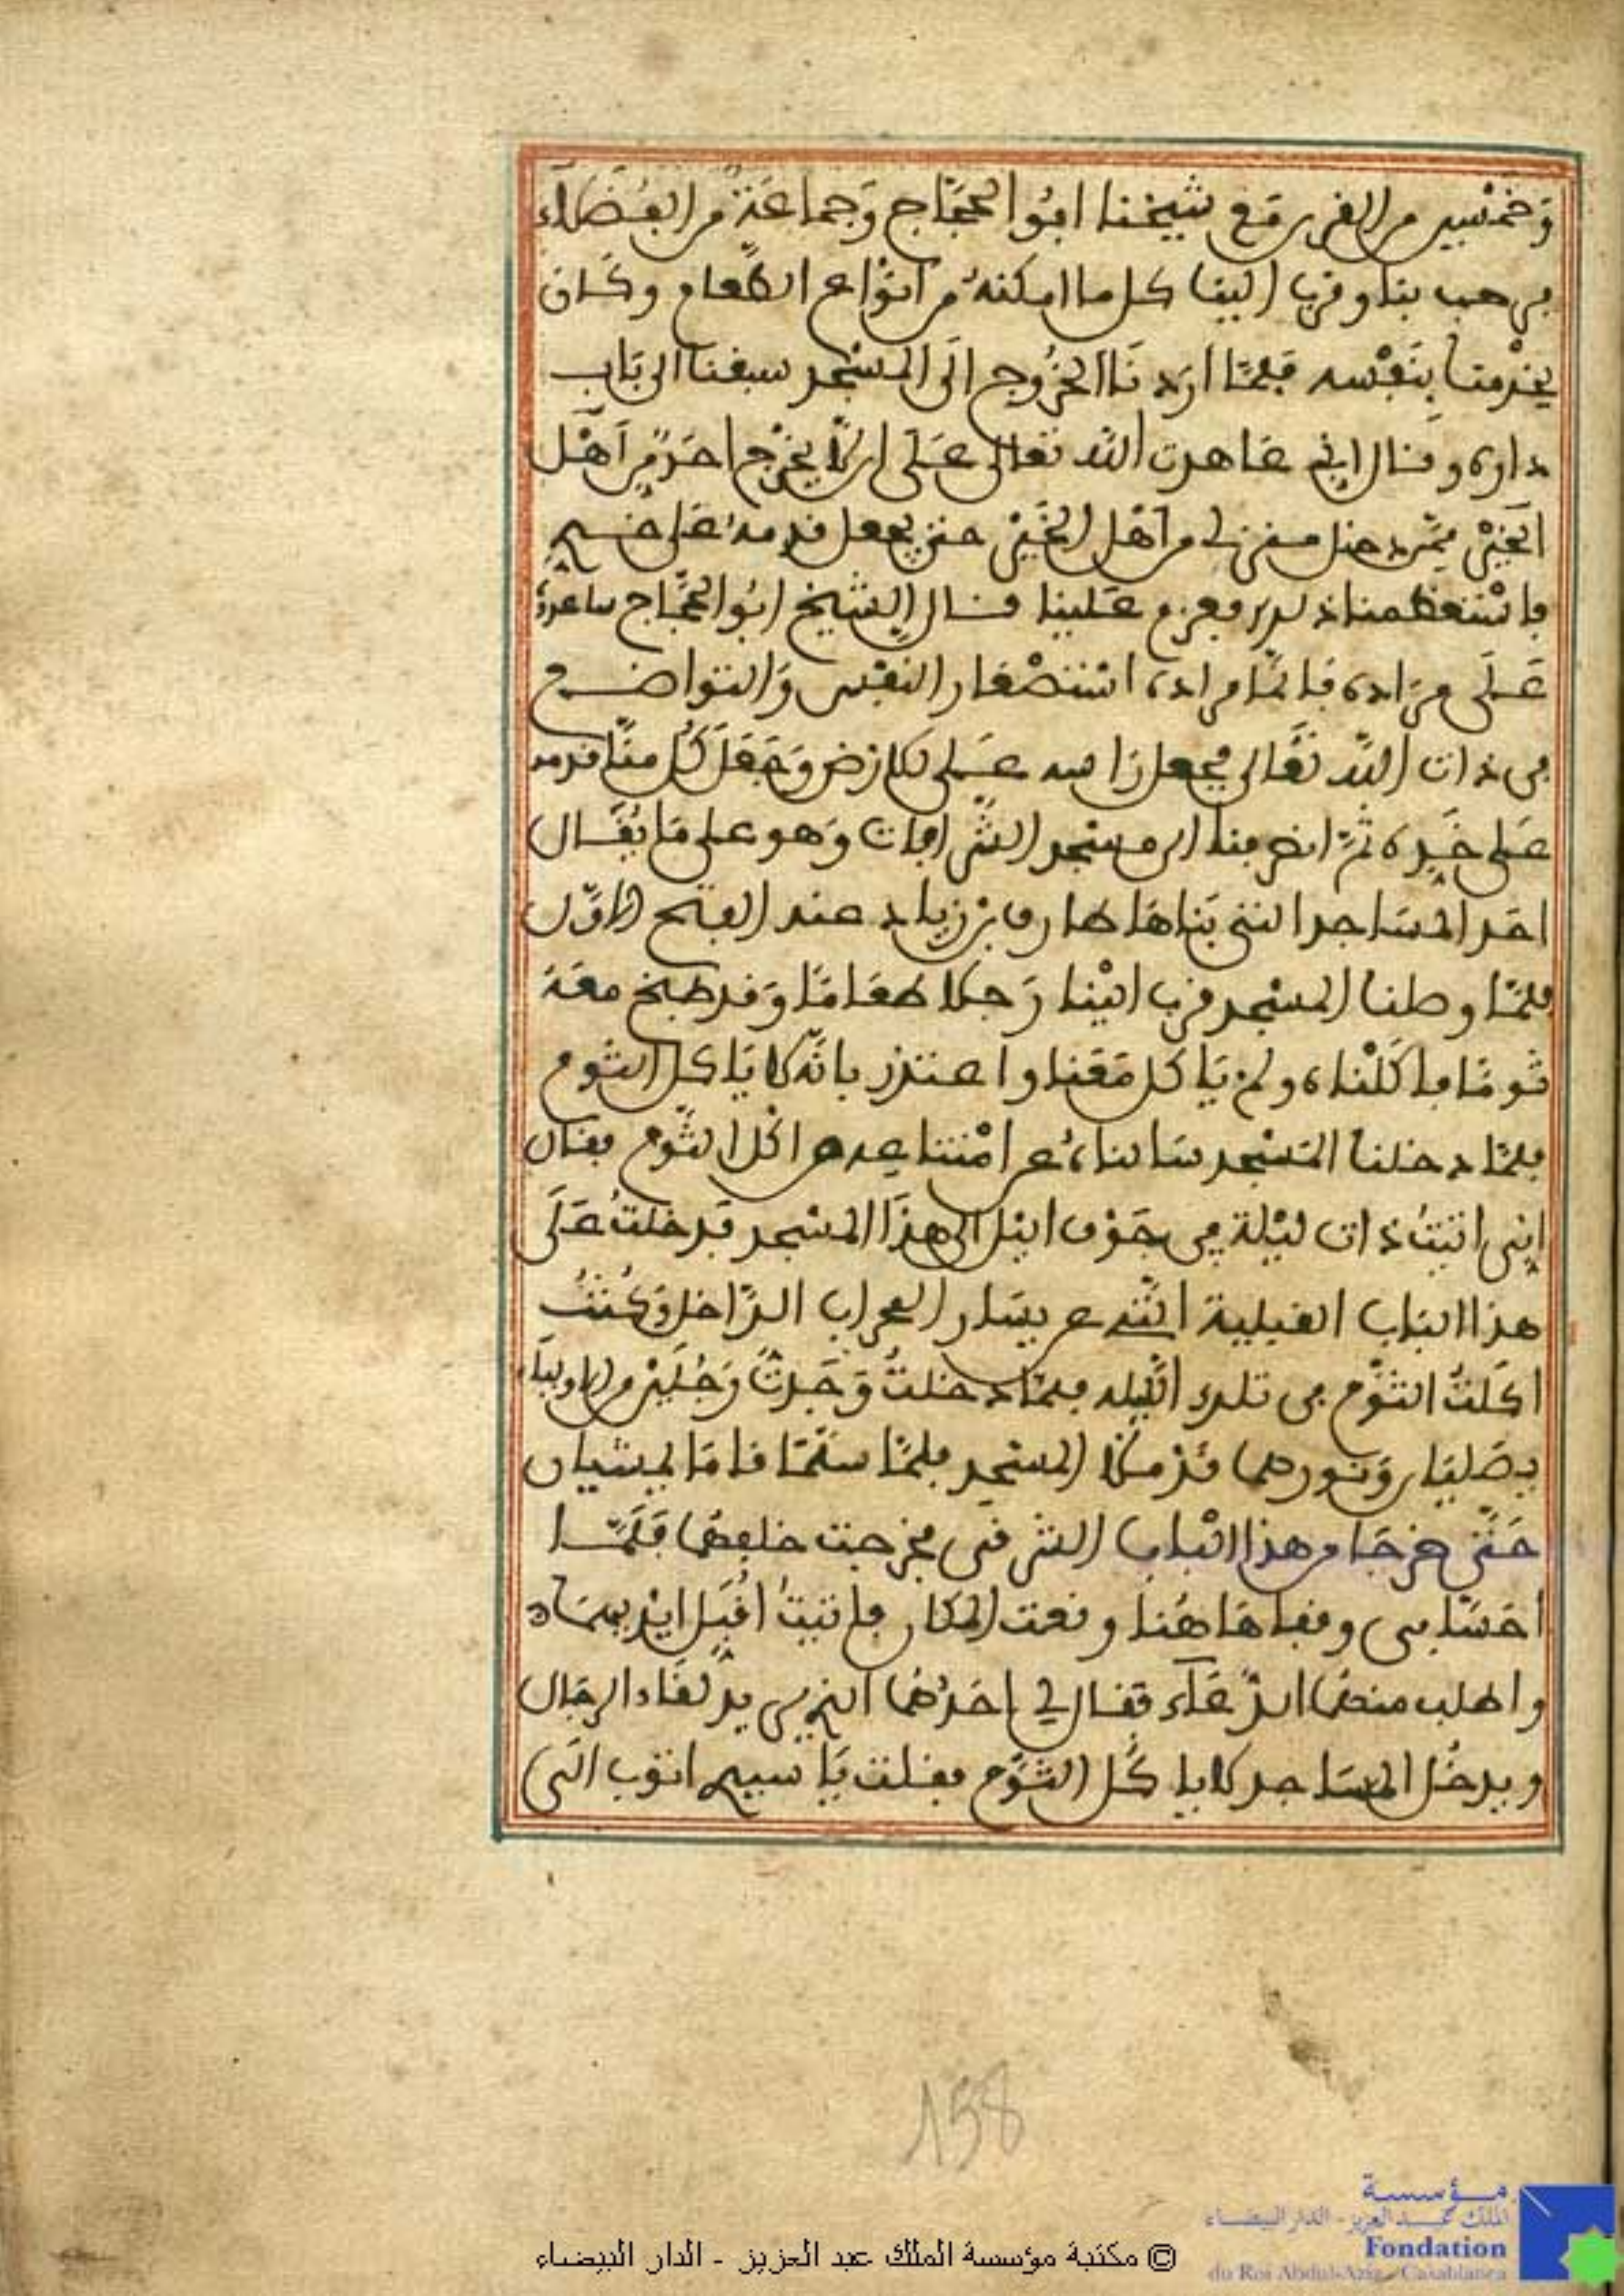 وَخمْسير من الغرب مَعَ شيخنا ابُو الحجَّاج وَجماعَةٌ من الفُضَلاَءِ
فرحب بنا وقرب إلينا كل ما امكنهُ من انْواع الطّعام وكَان
يخْدمنا بِنَفْسه فَلمَّا ارَدنَا الخُرُوج إلَى المسْجد سبقنا الى بَاب
داره وقال إني عاهدت اللّه تعالى عَلَى ان لاَّ يخْرُج احَدٌ من آهْل
الخَيْر ممَّن دخل منزلي من آهْل الخَيْر حتى يجعل قدمهُ على خدي
فاسْتعظمنا ذلك فعزم عَلينا فقال الشيخ ابُو الحجَّاج ساعدهُ
عَلَى مرَاده فانَّما مراده اسْتصْغار النفْس وَالتواضع
في ذات اللّه تعَالى فجعل رَاسه عَلى الارْض وَجَعَلَ كُل منَّا قدمه
عَلى خَدِّه ثمَّ انصرفنا الى مسْجد الشَّرافات وَهو على مَا يُقَال
احَد المسَاجد التي بَناهَا طارق بْن زياد عند الفتح الاوَّل
فلمَّا وصلنا المسْجد قرب اليْنا رَجلا طعَامًا وَقد طبخ معَهُ
ثومًا فاكَلْناه ولمْ يَاكل مَعَنا واعتذر بانَّه لا يَاكل الثوم
فلمَّا دخلنا المَسْجد سَالناهُ عن امْتناعه من اكْل الثُّوم فقال
إني اتيتُ ذات ليْلة في جَوْف اليْل الى هذَا المسْجد فَدخلتُ عَلَى
هذا البَاب القبلية الَّتي عن يسَار المحراب الدَّاخل وَكُنتُ
اكَلتُ الثُّوم في تلك الَّيله فلمَّا دخلتُ وَجَدتُ رَجُلَيْن من الاوليَاء
يصَليَان وَنورهما قدْ ملأ المسْجد فلمَّا سلَّمَا قامَا ليمشيان
حَتَّى خرجَا من هذا البْاب الشرقى فخرجت خلفهمَا فَلَمَّا
احَسَّا بى وقفا هَاهُنا ونعت المكان فاتيتُ اقَبِّل ايْديهمَا
واطلب منهمَا الدُّعَآء فَقال لي احَدُهُمَا الذي يريد لقَاء الرجَال
ويدخُل المسَاجد لا ياكُل الثُّوم فقلت يَا سيدي اتوب الَى
158
© مكتبة مؤسسة الملك عبد العزيز - الدار البيضاء
مؤسسة
الملك عبد العزيز - الدار البيضاء
Fondation
du Roi Abdul-Aziz - Casablanca